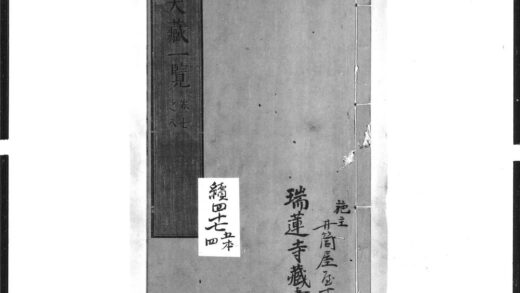 施主
井筒屋
瑞蓮寺藏
續四十七
五本
四
大藏一覽
卷七
之八